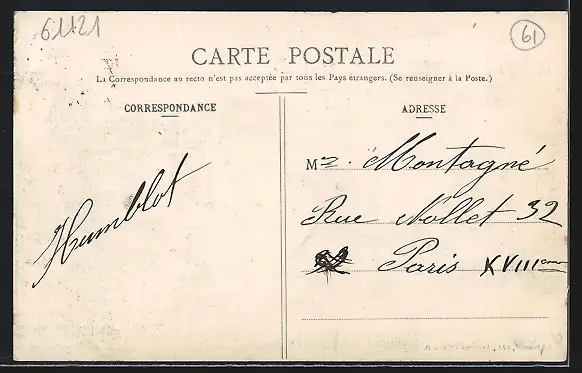 61121
61
CARTE POSTALE
La Correspondance au recto n'est pas acceptée par tous les Pays étrangers. (Se renseigner à la Poste.)
CORRESPONDANCE
ADRESSE
Humblot
Mr. Montagné
Rue Nollet 32
Paris XVIIIeme